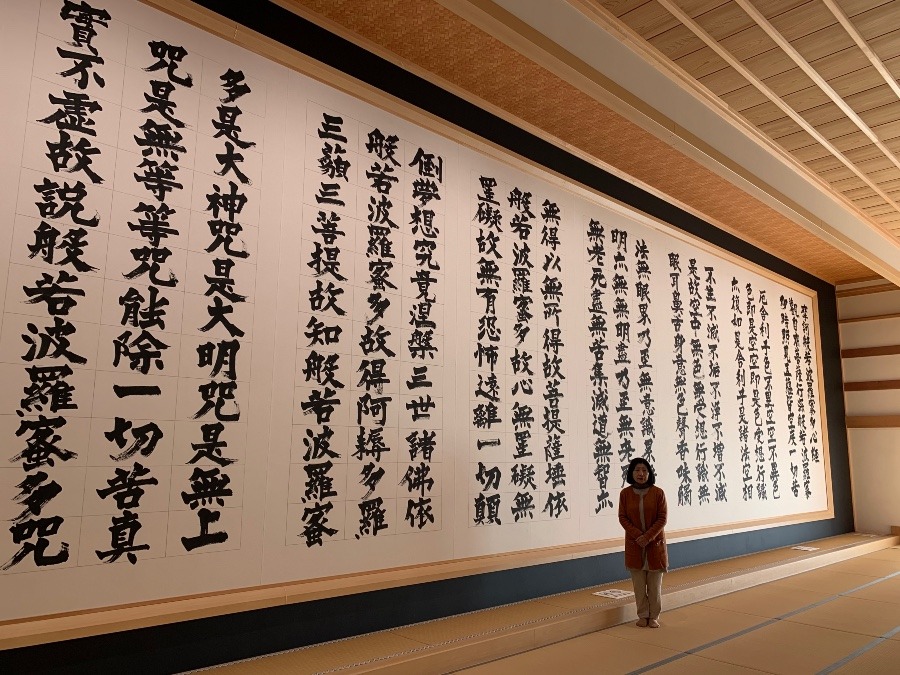 摩訶般若波羅蜜多心経
觀自在菩薩行深般若波羅蜜
多時照見五蘊皆空度一切苦
厄舎利子色不異空空不異色
色即是空空即是色受想行識
亦復如是舎利子是諸法空相
不生不滅不垢不浄不増不減
是故空中無色無受想行識無
眼耳鼻舌身意無色聲香味觸
法無眼界乃至無意識界
明亦無無明盡乃至無老
無老死盡無苦集滅道無智亦
無得以無所得故菩提薩埵依
般若波羅蜜多故心無罣礙無
罣礙故無有恐怖遠離一切顛
倒夢想究竟涅槃三世諸佛依
般若波羅蜜多故得阿耨多羅
三藐三菩提故知般若波羅蜜
多是大神咒是大明咒是無上
咒是無等等咒能除一切苦真
實不虛故説般若波羅蜜多咒